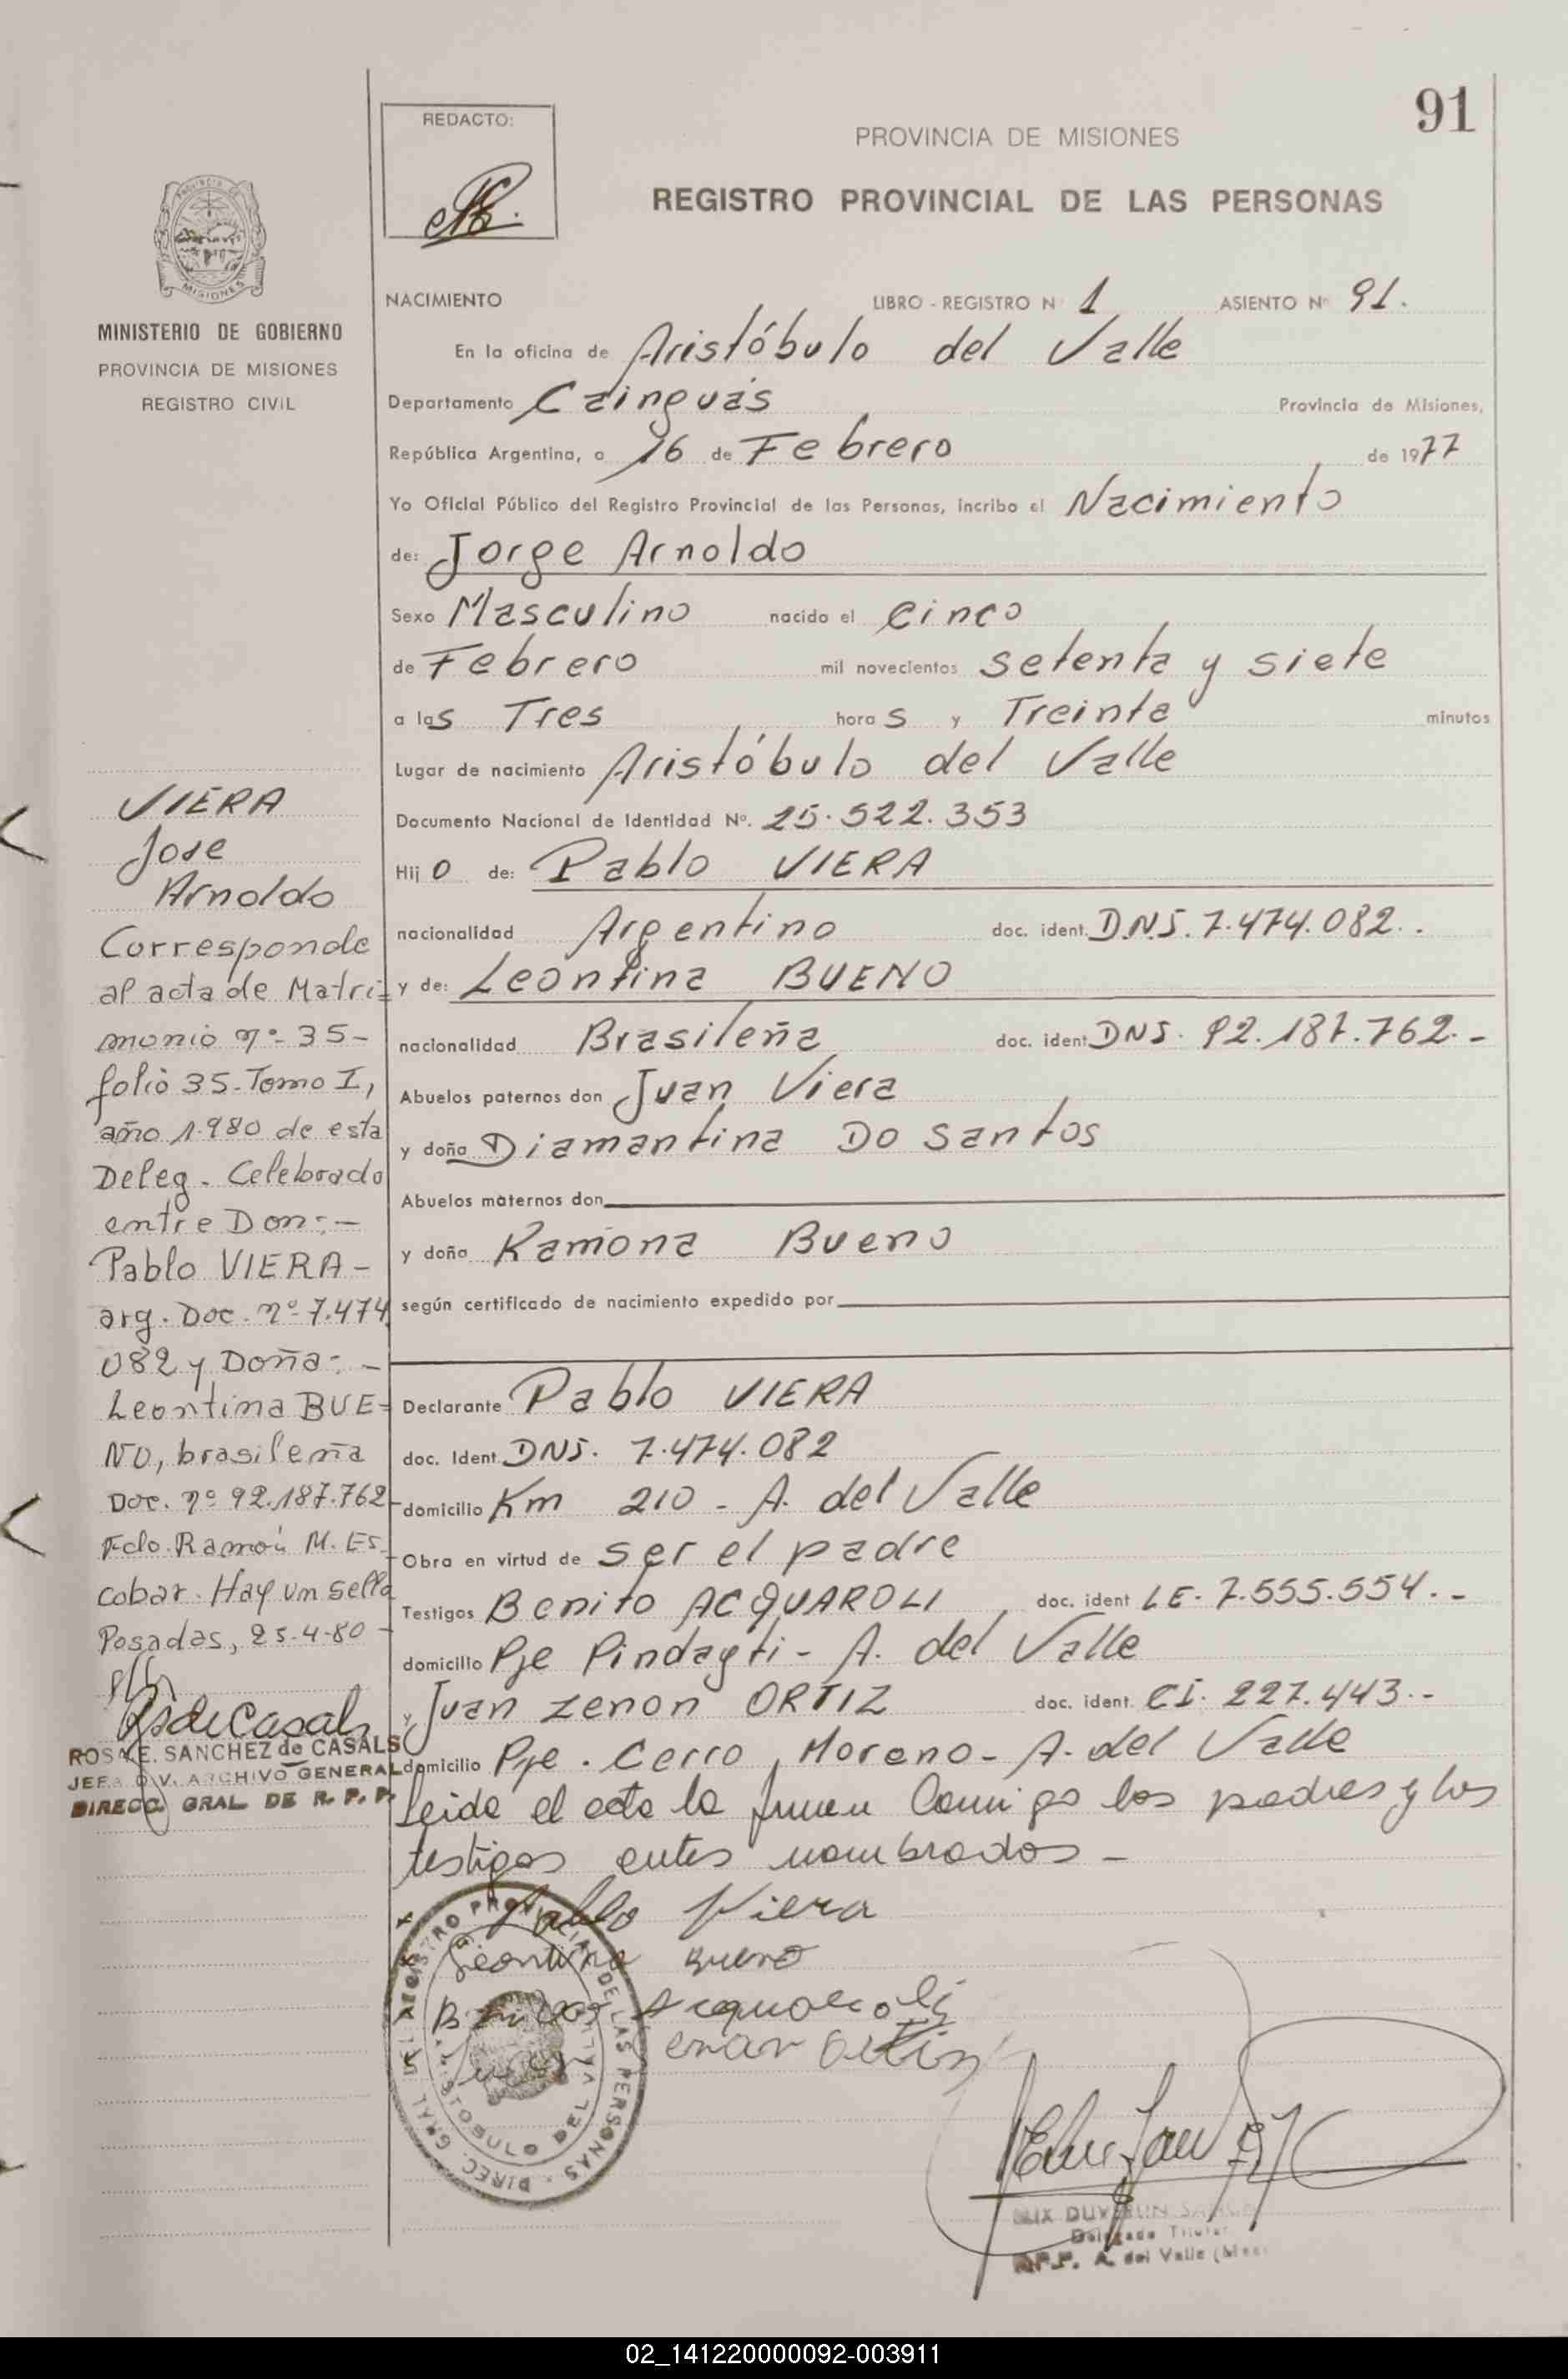 91
REDACTO:
PROVINCIA DE MISIONES
REGISTRO PROVINCIAL DE LAS PERSONAS
MISIONES
MINISTERIO DE GOBIERNO
PROVINCIA DE MISIONES
REGISTRO CIVIL
NACIMIENTO LIBRO - REGISTRO N 1 ASIENTO Nº 91.
En la oficina de Aristóbulo del Valle
Departamento Cainguás Provincia de Misiones,
República Argentina, a 16 de Febrero de 1977
Yo Oficial Público del Registro Provincial de las Personas, incribo el Nacimiento
de: Jorge Arnoldo
Sexo Masculino nacido el cinco
de Febrero mil novecientos setenta y siete
a las Tres horas y Treinta minutos
Lugar de nacimiento Aristóbulo del Valle
Documento Nacional de Identidad Nº. 25.522.353
Hijo de: Pablo VIERA
nacionalidad Argentino doc. ident. D.N.I. 7.474.082.
y de: Leontina BUENO
nacionalidad Brasileña doc. ident DNI. 92.187.762.-
Abuelos paternos don Juan Viera
y doña Diamantina Do santos
Abuelos maternos don
y doña Ramona Bueno
según certificado de nacimiento expedido por
Declarante Pablo VIERA
doc. Ident. DNI. 7.474.082
domicilio Km 210 - A. del Valle
Obra en virtud de ser el padre
Testigos Benito ACQUAROLI doc. ident LE. 7.555.554.-
domicilio Pje Pindayti - A. del Valle
y Juan zenon ORTIZ doc. ident. CI. 227.443.-
domicilio Pje. Cerro Moreno - A. del Valle
Leida el acta la firman conmigo los padres y los
testigos antes nombrados -
Pablo Viera
Leontina Bueno
Acquaroli
Juan
VIERA
Jose
Arnoldo
Corresponde
al acta de Matri=
monio nº 35-
folio 35-Tomo I,
año 1.980 de esta
Deleg. Celebrado
entre Don:-
Pablo VIERA-
arg. Doc. nº 7.474.
082 y Doña:-
Leontina BUE=
NO, brasileña
Doc. nº 92.187.762-
Fdo. Ramón M. Es-
cobar. Hay un sello
Posadas, 25-4-80-
ROSA E. SANCHEZ de CASALS
JEFA DIV. ARCHIVO GENERAL
DIRECC. GRAL DE R. P. P.
DIREC. GRAL. DEL REGISTRO PROVINCIAL DE LAS PERSONAS
ARISTOBULO DEL VALLE
Delegado Titular
R.P.P. A. del Valle
02_141220000092-003911